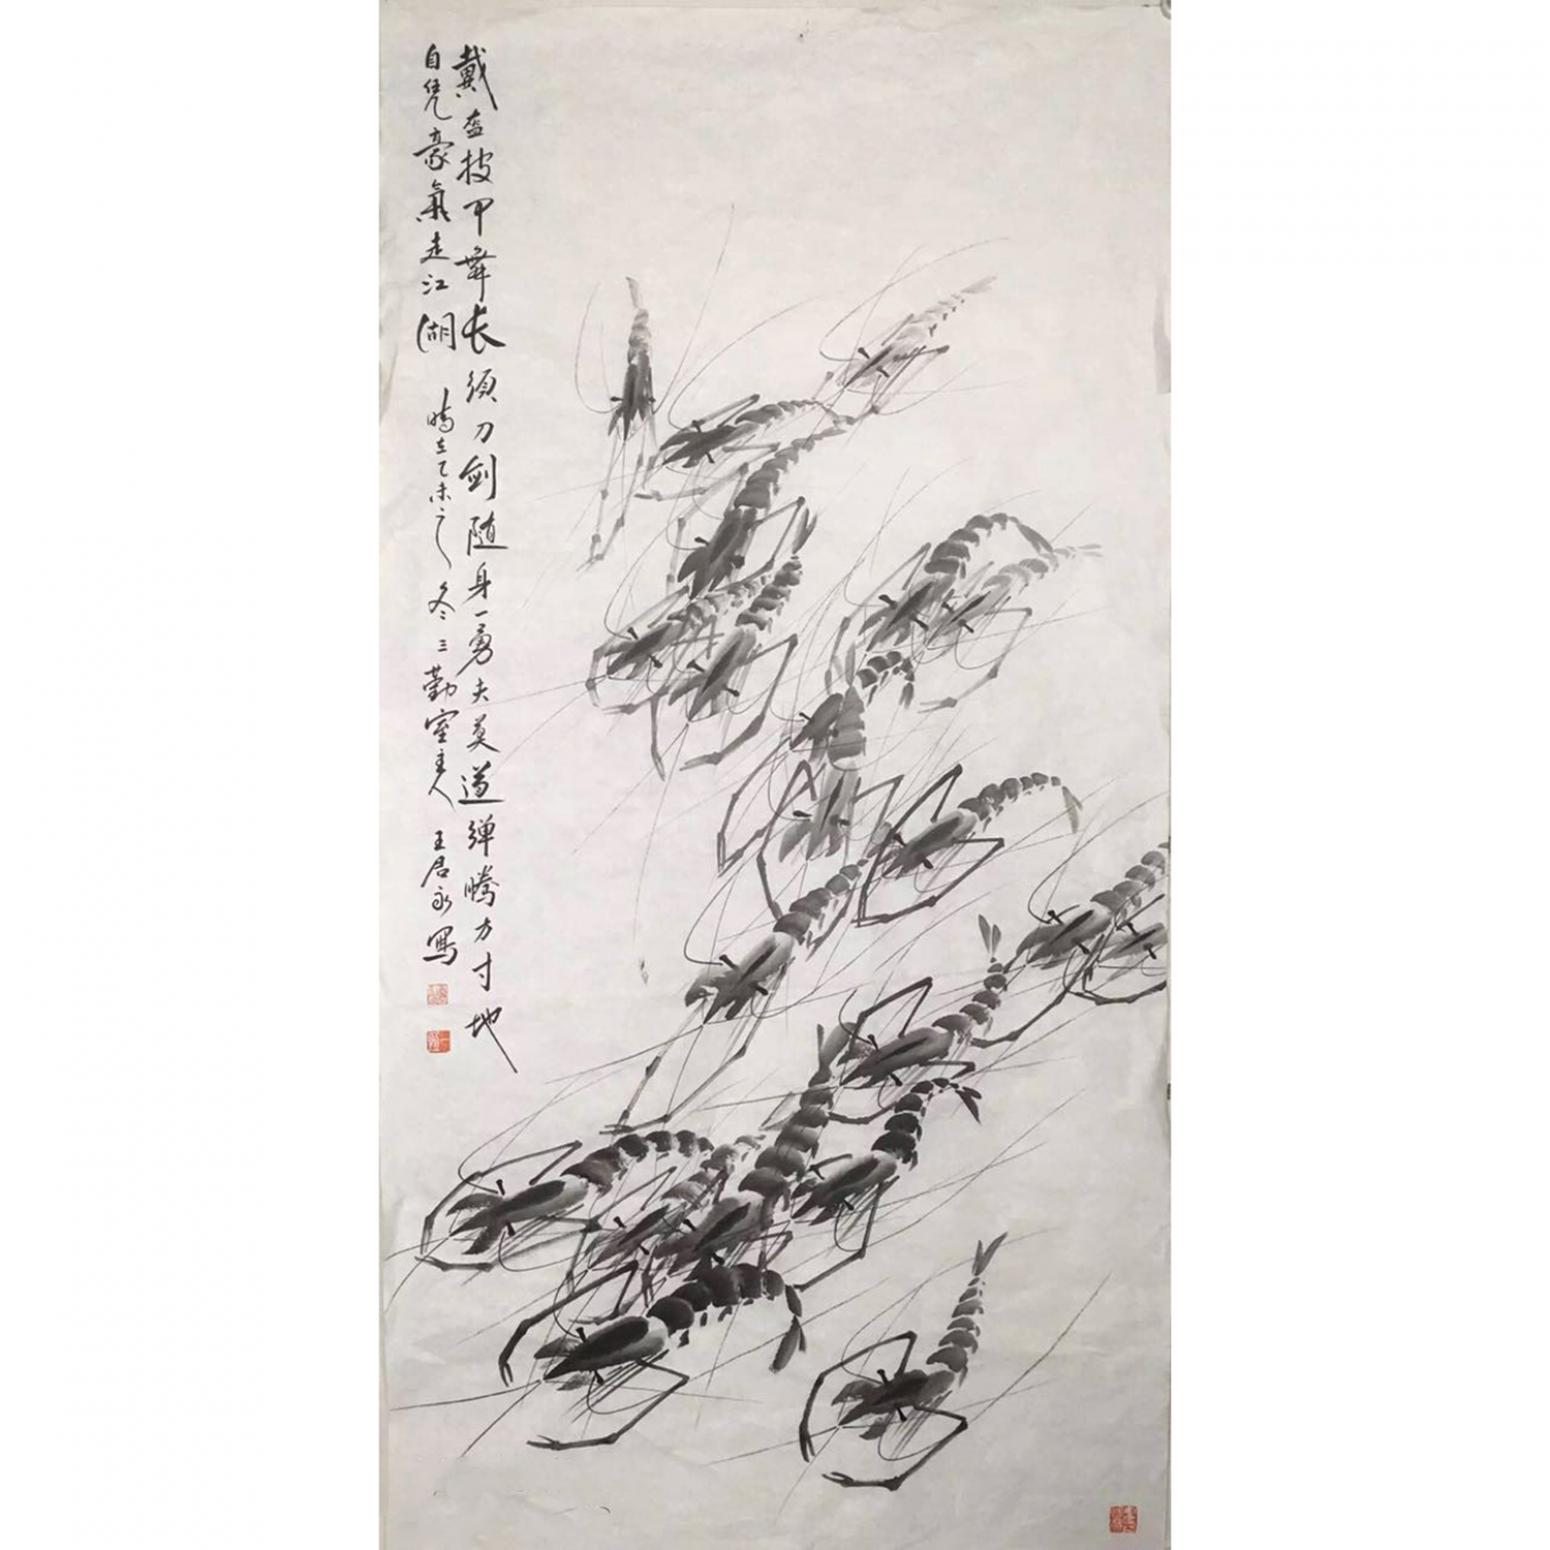 戴盔披甲舞长须刀剑随身一勇夫莫道弹腾方寸地
自凭豪氣走江湖 時在乙未之冬三勤室主人王君永寫